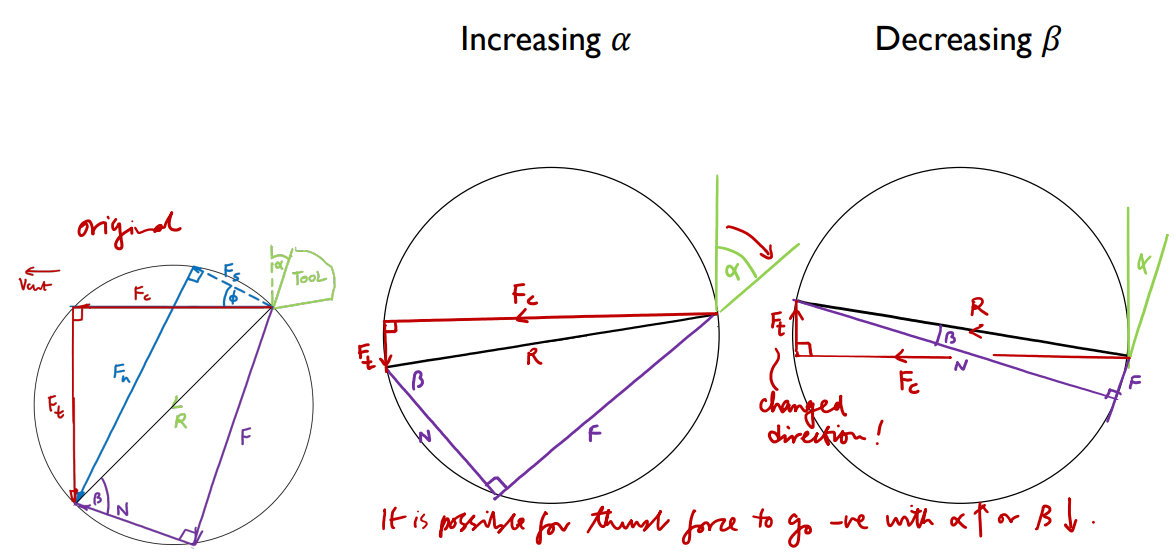 Increasing α
Decreasing β
original
Vcut
Fc
Fs
ϕ
α
TOOL
Fn
Ft
R
F
β
N
α
Fc
Ft
R
β
N
F
α
R
Ft
β
N
Fc
F
changed
direction!
It is possible for thrust force to go -ve with α↑ or β↓.